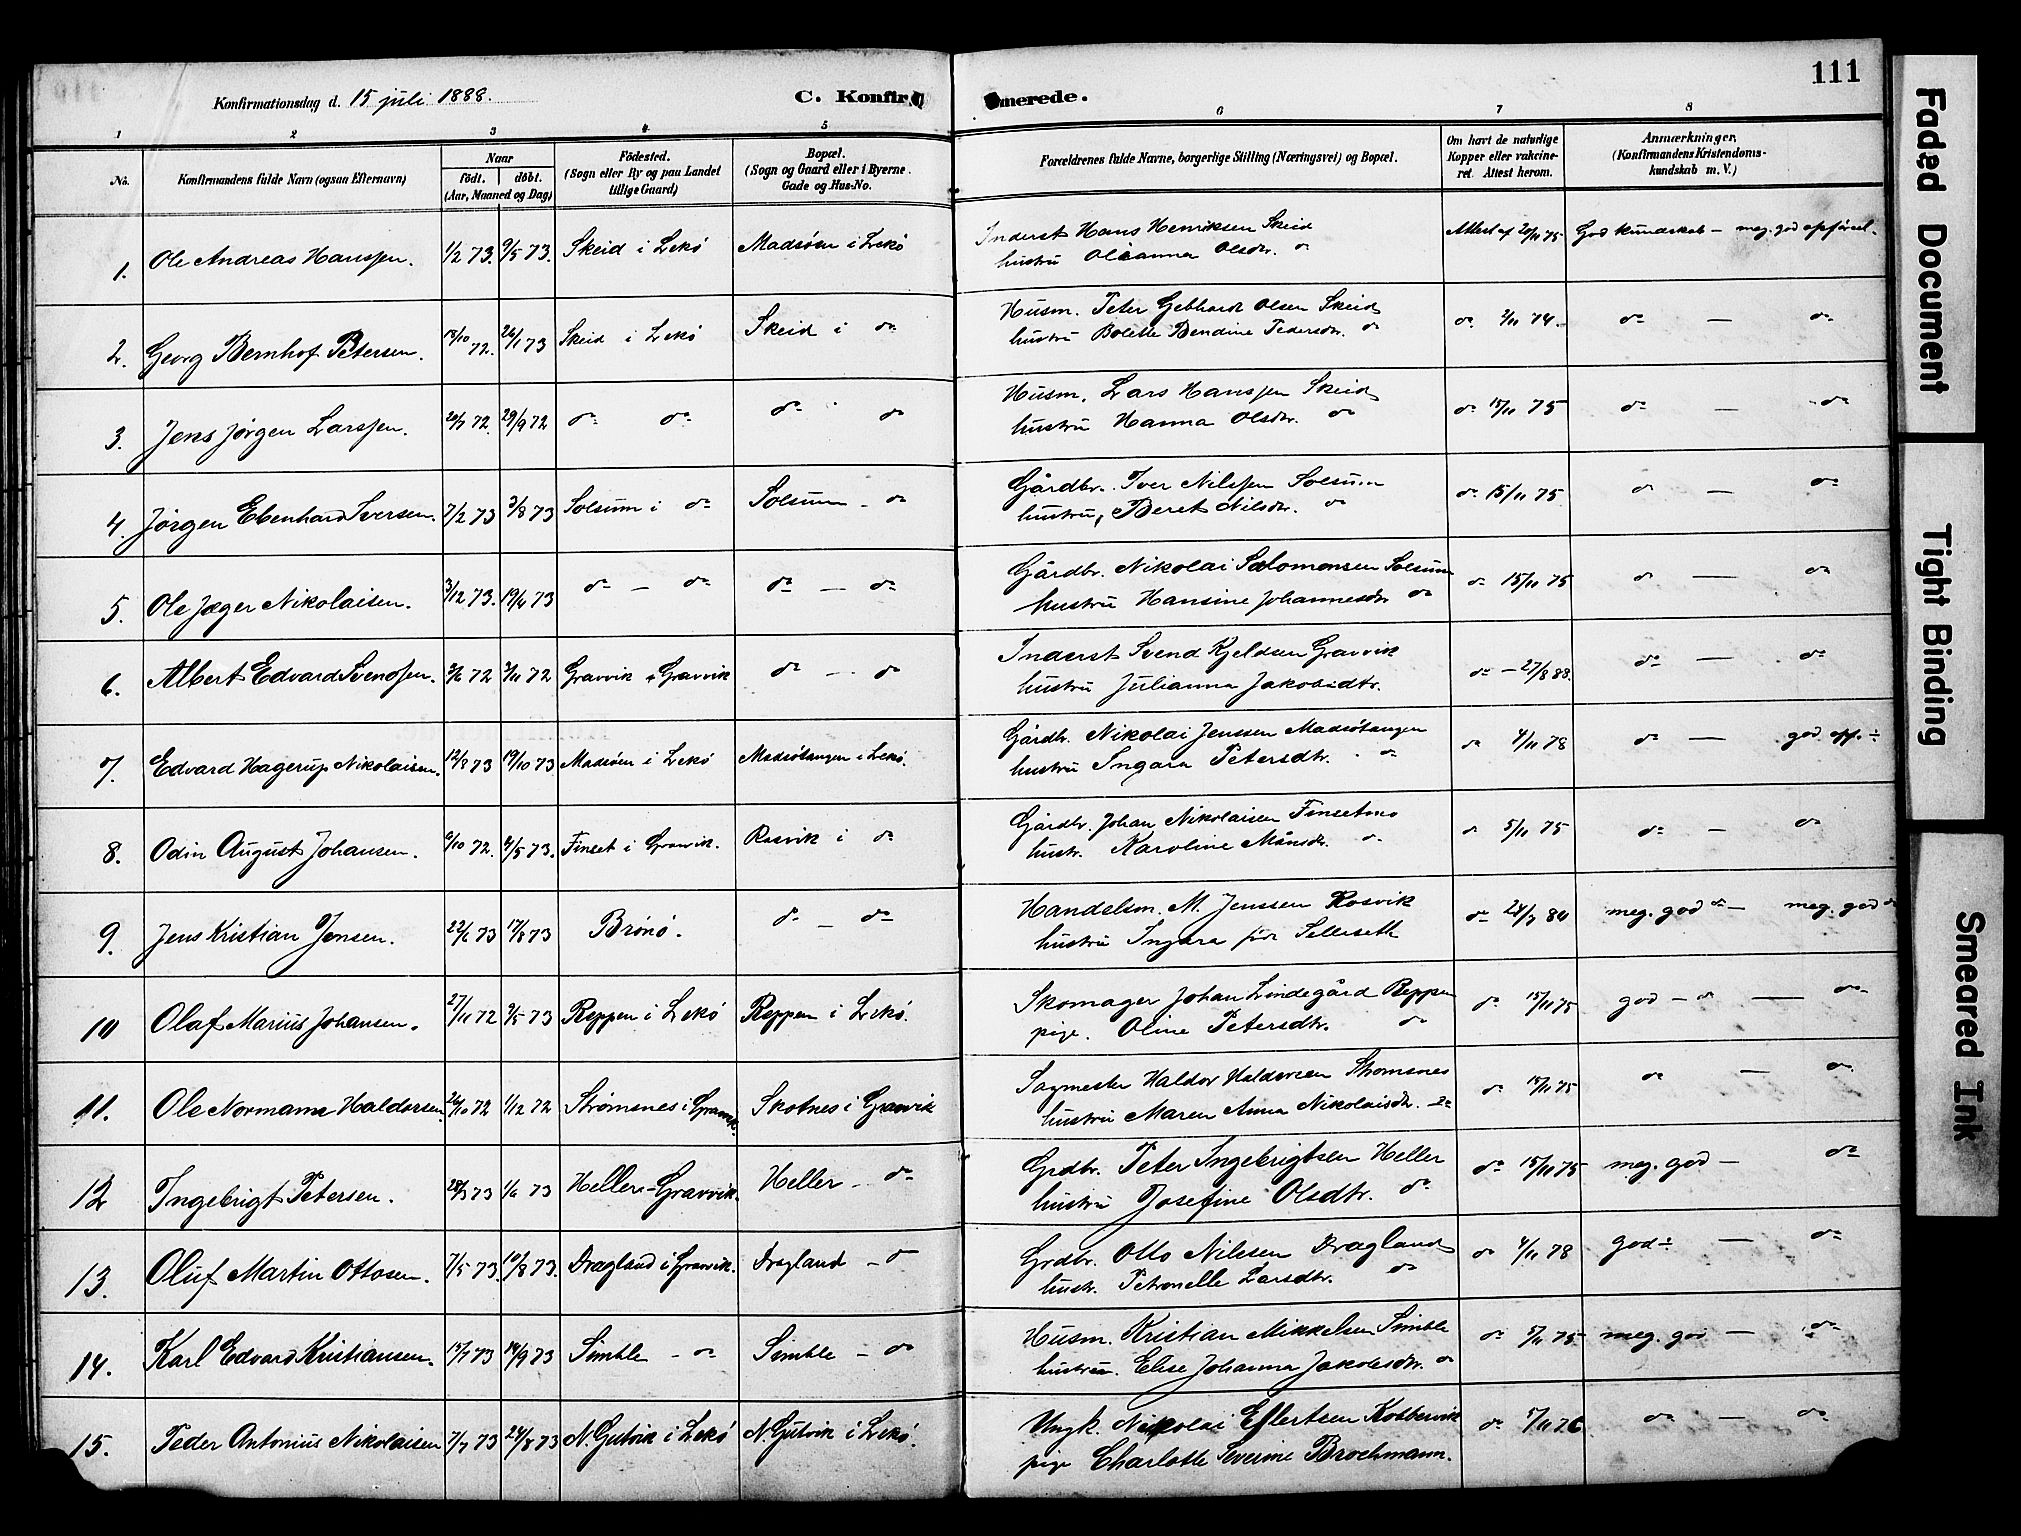 111
Konfirmationsdag d. 15 juli 1888. C. Konfirmerede.
1 2 3 4 5 6 7 8
No. Konfirmandens fulde Navn (ogsaa Efternavn) Naar födt. döbt. (Aar, Maaned og Dag) Födested. (Sogn eller By og paa Landet tillige Gaard) Bopæl. (Sogn og Gaard eller i Byerne Gade og Hus-No. Forældrenes fulde Navne, borgerlige Stilling (Næringsvei) og Bopæl. Om havt de naturlige Kopper eller vakcineret. Attest herom. Anmærkninger, (Konfirmandens Kristendomskundskab m. V.)
1. Ole Andreas Hanssen. 1/2 73. 9/5 73. Skeid i Lekö Madsöen i Lekö Inderst Hans Henriksen Skeid Attest af 20/11 75 God kundskab — meg. god opförsel.
hustru Olianna Olsdtr. do
2. Georg Bernhof Petersen. 18/10 72. 26/1 73 Skeid i Lekö Skeid i do Husm. Peter Gebhardt Olsen Skeid do 2/11 74. do — do
hustru Bolette Bendine Pedersdtr. do
3. Jens Jörgen Larssen. 20/7 72. 29/9 72 do do do do Husm. Lars Hanssen Skeid do 15/11 75 do — do
hustru Hanna Olsdtr. do
4. Jörgen Ebenhard Iversen. 7/2 73 3/8 73 Solsum i do Solsum - do Gårdbr. Iver Nilssen Solsum do 15/11 75 do — do
hustru, Beret Nilsdtr. do
5. Ole Jæger Nikolaisen. 3/12 73. 19/4 73 do — do do — do Gårdbr. Nikolai Salomonsen Solsum do 15/11 75 do — do
hustru Hansine Johannesdtr do
6. Albert Edvard Svendsen. 3/6 72 3/11 72 Gravvik i Gravvik do — do Inderst Svend Kjeldsen Gravvik do — 27/8 88. do — do
hustru Julianna Jakobsdtr.
7. Edvard Hagerup Nikolaisen. 12/8 73 19/10 73 Madsöen i Lekö Madsötangen i Lekö. Gårdbr. Nikolai Jenssen Madsötangen do 4/11 78 do — god opf. ÷
hustru Ingara Petersdtr. do
8. Odin August Johansen. 6/10 72. 4/5 73. Finset i Gravvik. Rosvik i do Gårdbr. Johan Nikolaisen Finsetmo do 5/11 75 do — do
hustr. Karoline Månsdr. do
9. Jens Kristian Jensen. 22/6 73 17/8 73 Brönö. do — do Handelsm. M. Jenssen Rosvik do 24/7 84 meg. god do — meg. god do
hustru Ingara föd Selleseth
10 Olaf Marius Johansen. 27/11 72 9/5 73 Reppen i Lekö Reppen i Lekö. Skomager Johan Lindegård Reppen do 15/11 75 god — do — do
pige. Oline Petersdtr. do
11. Ole Normann Haldorsen. 26/10 72 1/12 72 Strömsnes i Gravvik. Skotnes i Gravvik Sagmester Haldor Haldorsen Strömsnes do 15/11 75 do — do
hustru Maren Anna Nikolaisdtr. do
12 Ingebrigt Petersen. 28/3 73 1/6 73 Heller - Gravvik. Heller - do Grdbr. Peter Ingebrigtsen Heller do 15/11 75 meg. god — do
hustru Josefine Olsdtr. do
13. Oluf Martin Ottosen. 7/5 73. 10/8 73. Dragland i Gravvik. Dragland - do Grdbr. Otto Nilssen Dragland do 4/11 78 god ÷ — do
hustr. Petronelle Larsdtr. do
14. Karl Edvard Kristiansen. 17/7 73 14/9 73 Simble - do Simble - do Husm. Kristian Mikkelsen Simble do 5/11 75 meg. god — do
hustru. Elise Johanna Jakobsdtr. do
15. Peder Antonius Nikolaisen 7/7 73 24/8 73 N. Gutvik i Lekö N. Gutvik i Lekö. Ungk. Nikolai Eflertsen Kobbervik do 5/11 76 do — do
pige Charlotte Severine Brochmann.
Faded Document
Tight Binding
Smeared Ink